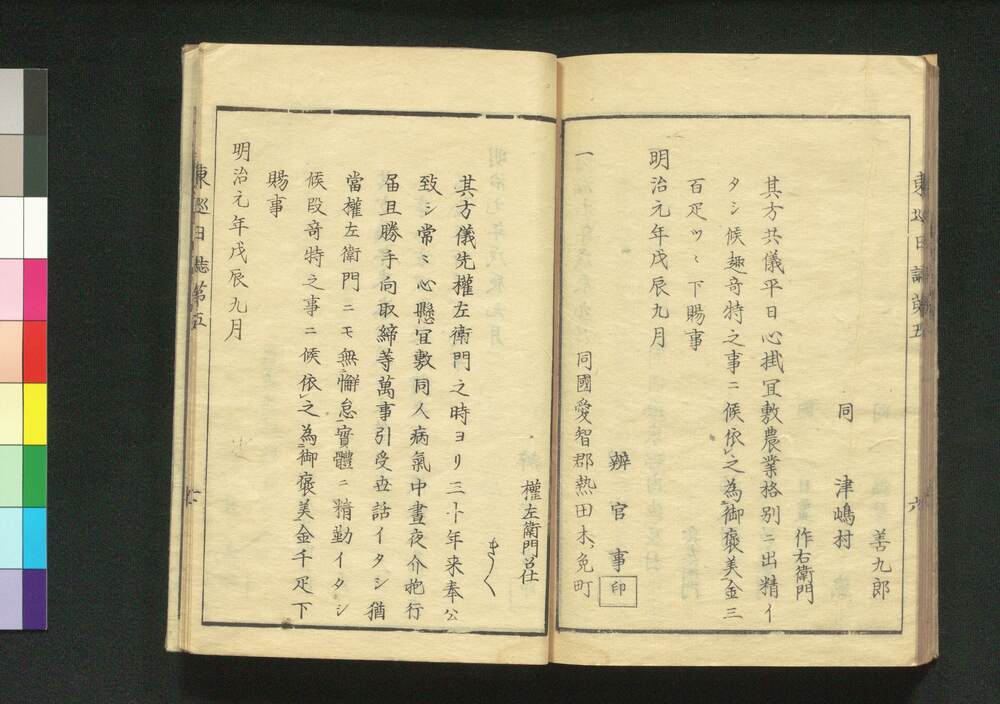 東巡日誌第五
六
善九郎
同　津嶋村
作右衛門
其方共儀平日心掛冝敷農業格別ニ出精イ
タシ候趣竒特之事ニ候依之為御褒美金三
百疋ツヽ下賜事
明治元年戊辰九月
辨官事印
一　同國愛智郡熱田木ノ免町
權左衛門召仕
きく
其方儀先權左衛門之時ヨリ三十年来奉公
致シ常々心懸冝敷同人病氣中晝夜介抱行
届且勝手向取締等萬事引受世話イタシ猶
當權左衛門ニモ無懈怠實體ニ精勤イタシ
候段竒特之事ニ候依之為御褒美金千疋下
賜事
明治元年戊辰九月
東巡日誌第五